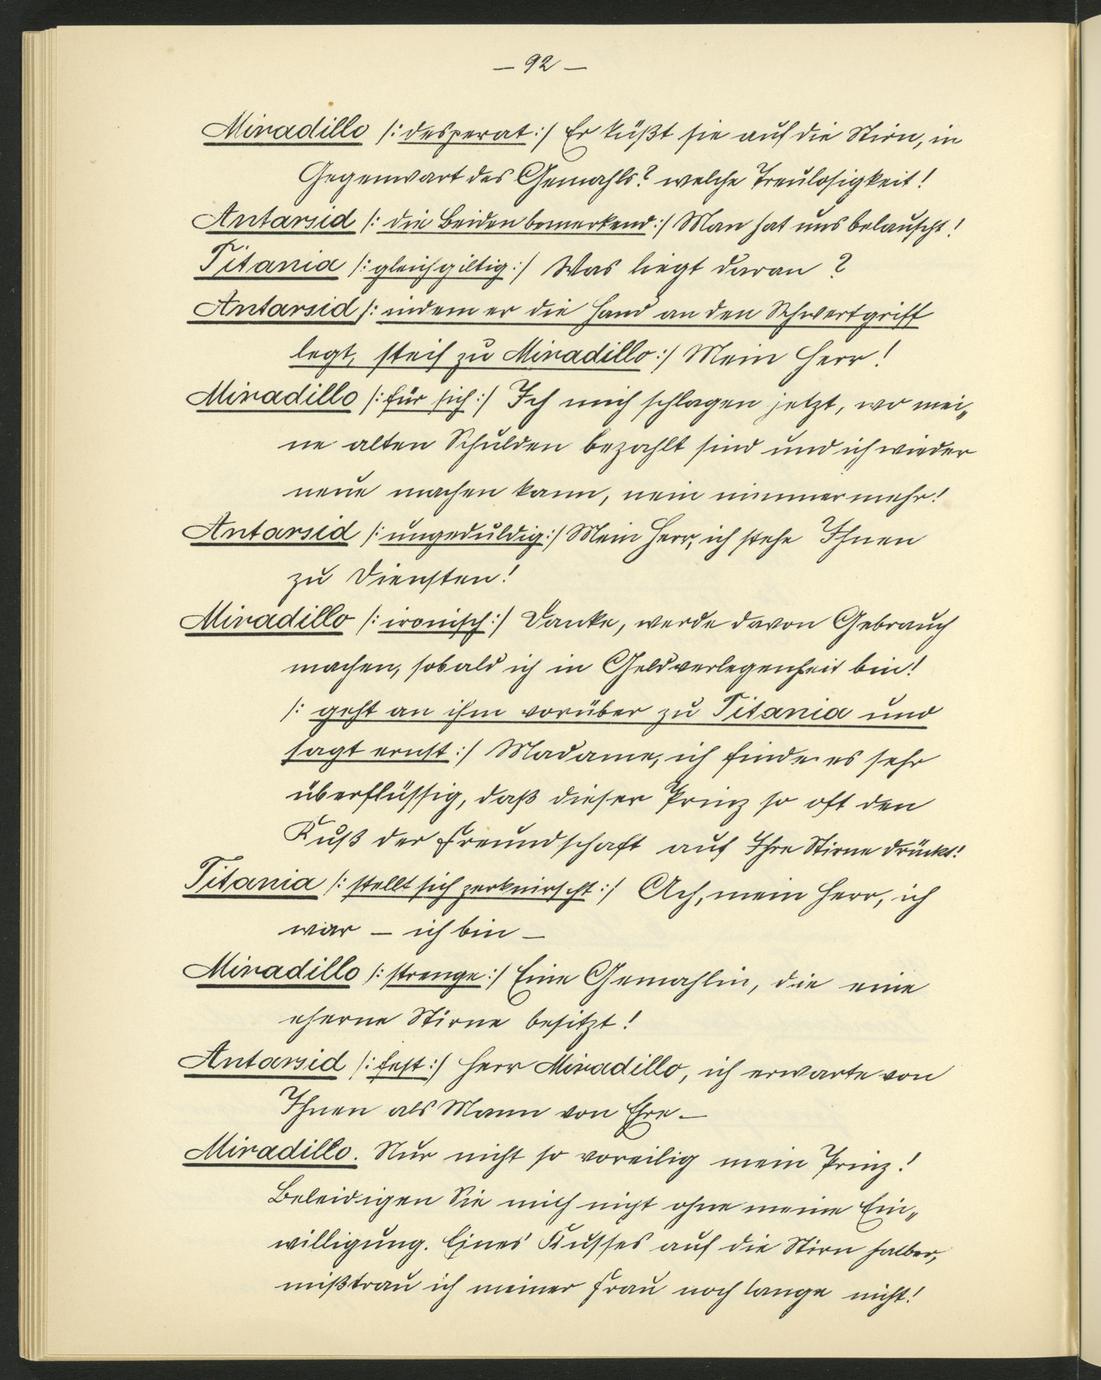 — 92 —
Miradillo /: desperat :/ Er küßt sie auf die Stirn, in
Gegenwart des Gemahls? welche Treulosigkeit!
Antarsid /: die Beiden bemerkend :/ Man hat uns belauscht!
Titania /: gleichgiltig :/ Was liegt daran?
Antarsid /: indem er die Hand an den Schwertgriff
legt, steif zu Miradillo :/ Mein Herr!
Miradillo /: für sich :/ Ich mich schlagen jetzt, wo mei„
ne alten Schulden bezahlt sind und ich wieder
neue machen kann, nein nimmermehr!
Antarsid /: ungeduldig :/ Mein Herr, ich stehe Ihnen
zu Diensten!
Miradillo /: ironisch :/ Danke, werde davon Gebrauch
machen, sobald ich in Geldverlegenheit bin!
/: geht an ihm vorüber zu Titania und
sagt ernst :/ Madame, ich finde es sehr
überflüssig, daß dieser Prinz so oft den
Kuß der Freundschaft auf Ihre Stirne drückt!
Titania /: stellt sich zerknirscht :/ Ach, mein Herr, ich
war — ich bin —
Miradillo /: strenge :/ Eine Gemahlin, die eine
eherne Stirne besitzt!
Antarsid /: fest :/ Herr Miradillo, ich erwarte von
Ihnen als Mann von Ehre —
Miradillo. Nur nicht so voreilig mein Prinz!
Beleidigen Sie mich nicht ohne meine Ein„
willigung. Eines Kusses auf die Stirn halber,
mißtrau ich meiner Frau noch lange nicht!